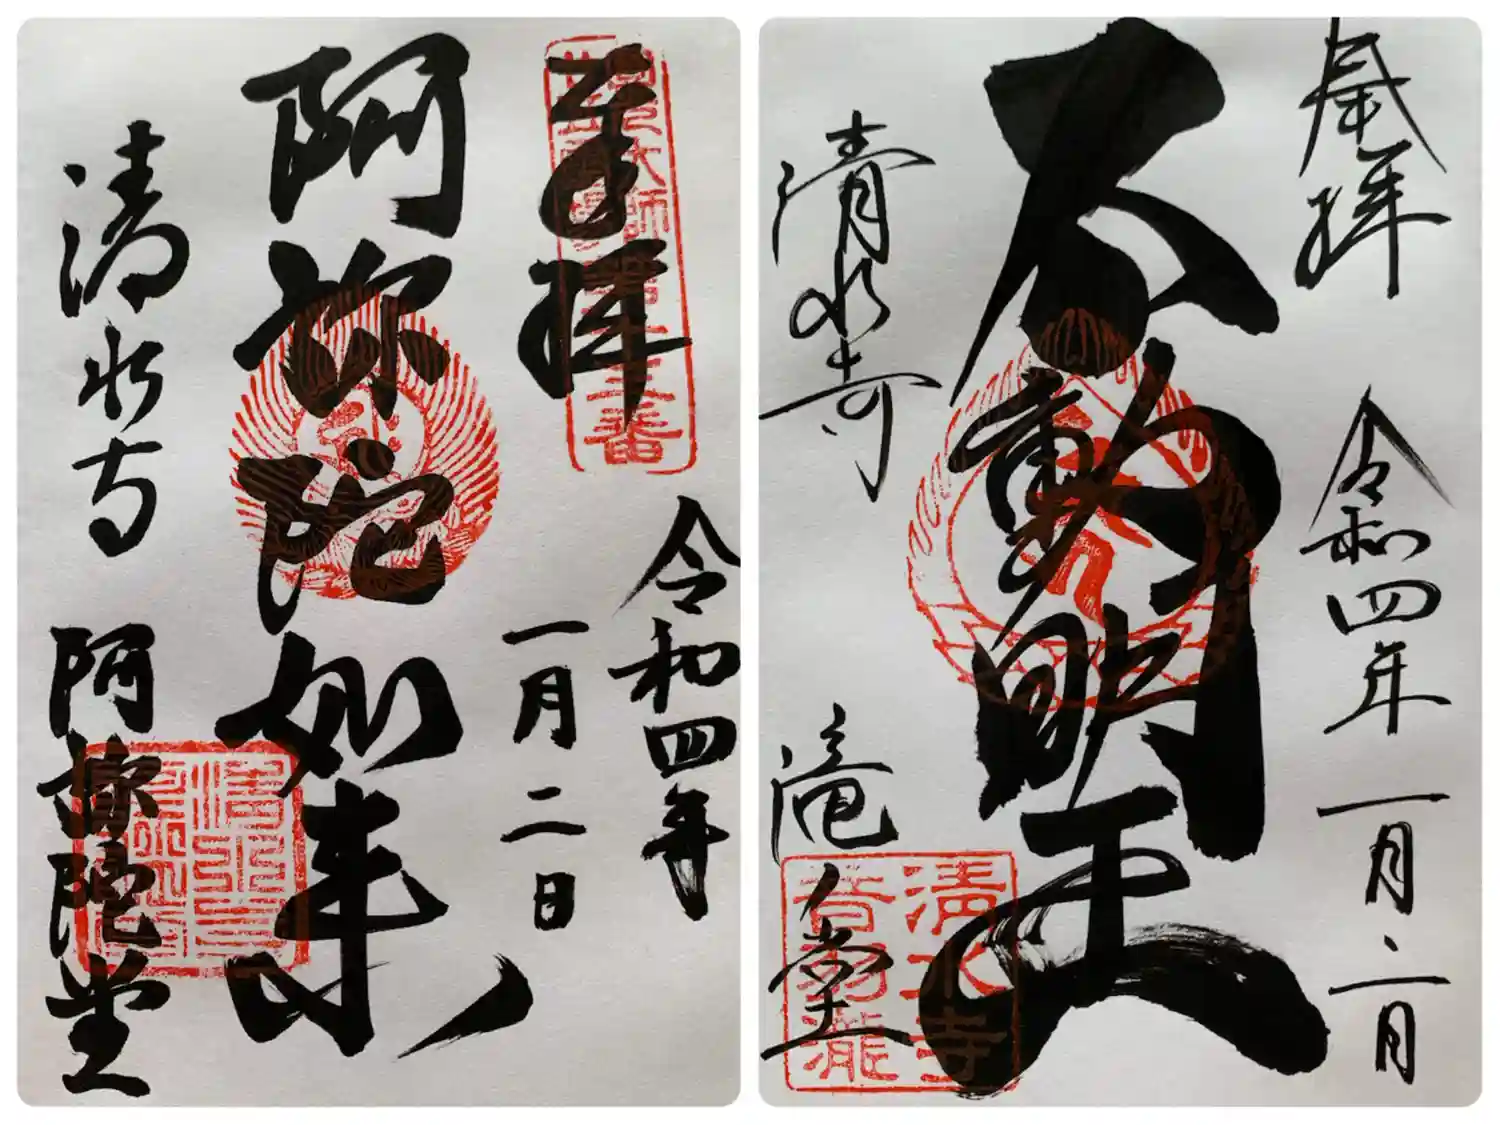 奉拝
令和四年
一月二日
阿弥陀如来
清水寺
阿弥陀堂
奉拝
令和四年一月二日
不動明王
清水寺
滝ノ堂
清水寺
音羽瀧